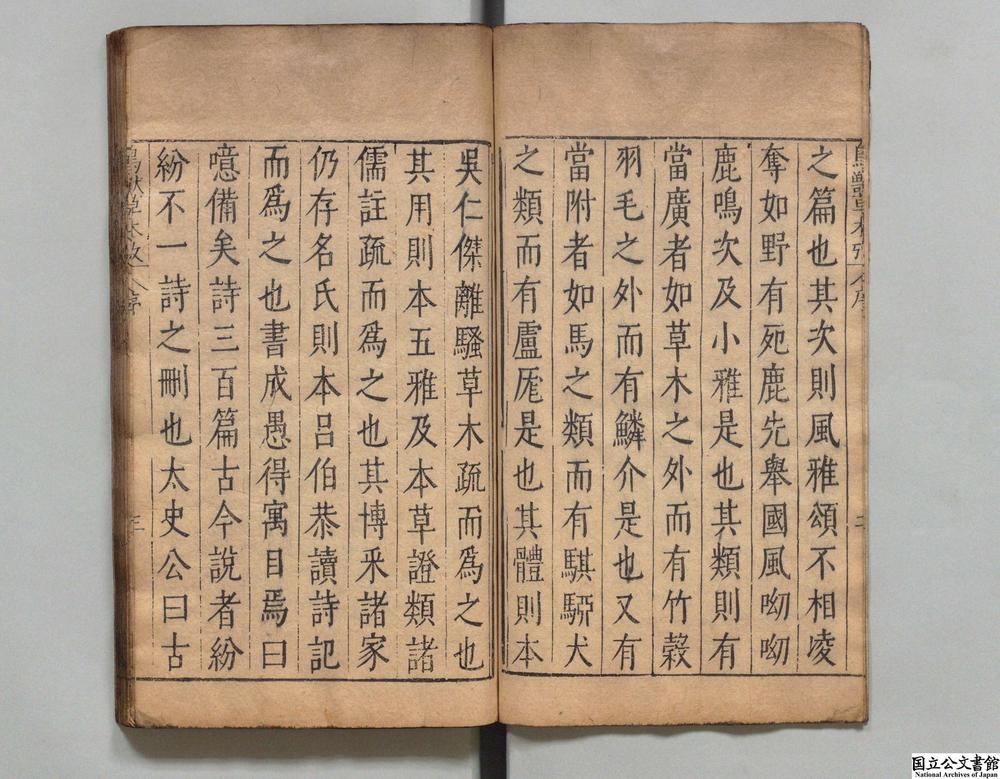 之篇也其次則風雅頌不相凌
奪如野有死鹿先舉國風呦呦
鹿鳴次及小雅是也其類則有
當廣者如草木之外而有竹穀
羽毛之外而有鱗介是也又有
當附者如馬之類而有騏駵犬
之類而有盧厖是也其體則本
吳仁傑離騷草木疏而爲之也
其用則本五雅及本草證類諸
儒註疏而爲之也其博釆諸家
仍存名氏則本呂伯恭讀詩記
而爲之也書成愚得寓目焉曰
噫備矣詩三百篇古今說者紛
紛不一詩之刪也太史公曰古
鳥獸草木攷 序
三
国立公文書館
National Archives of Japan